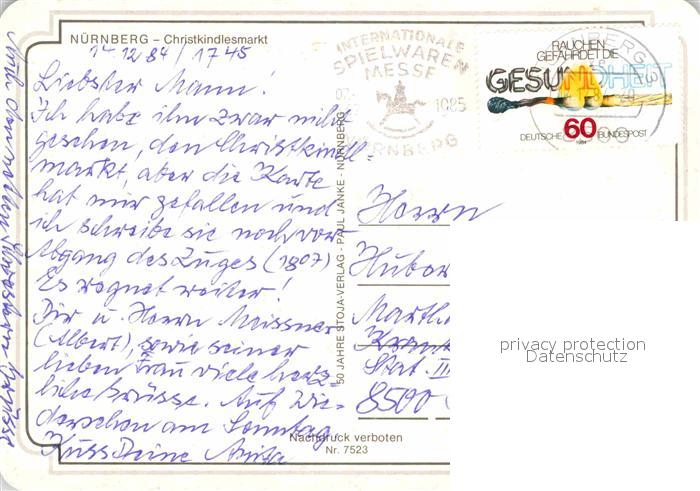 NÜRNBERG – Christkindlesmarkt
14 12/84 / 17 45
Liebster Mann!
Ich habe ihn zwar nicht
gesehen, den Christkindl-
markt, aber die Karte
hat mir gefallen und
ich schreibe sie noch vor
Abgang des Zuges (1807)
Es regnet weiter!
Dir u. Herrn Meissner
(Albert), sowie seiner
lieben Frau viele herz-
liche Grüsse. Auf Wie-
dersehen am Sonntag
Kuss Deine Anita
50 JAHRE STOJA-VERLAG - PAUL JANKE - NÜRNBERG
Nachdruck verboten
Nr. 7523
INTERNATIONALE
SPIELWAREN
MESSE
1985
NÜRNBERG
RAUCHEN
GEFÄHRDET DIE
GESUNDHEIT
DEUTSCHE 60 BUNDESPOST
1984
NÜRNBERG 3
Herrn
Huber
Martha
Stat. III
8500
privacy protection
Datenschutz